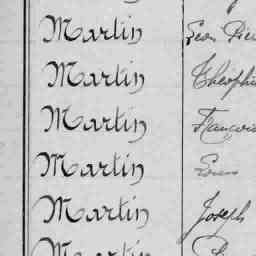 Martin Léon Pier
Martin Théophi
Martin François
Martin
Martin Joseph
Martin